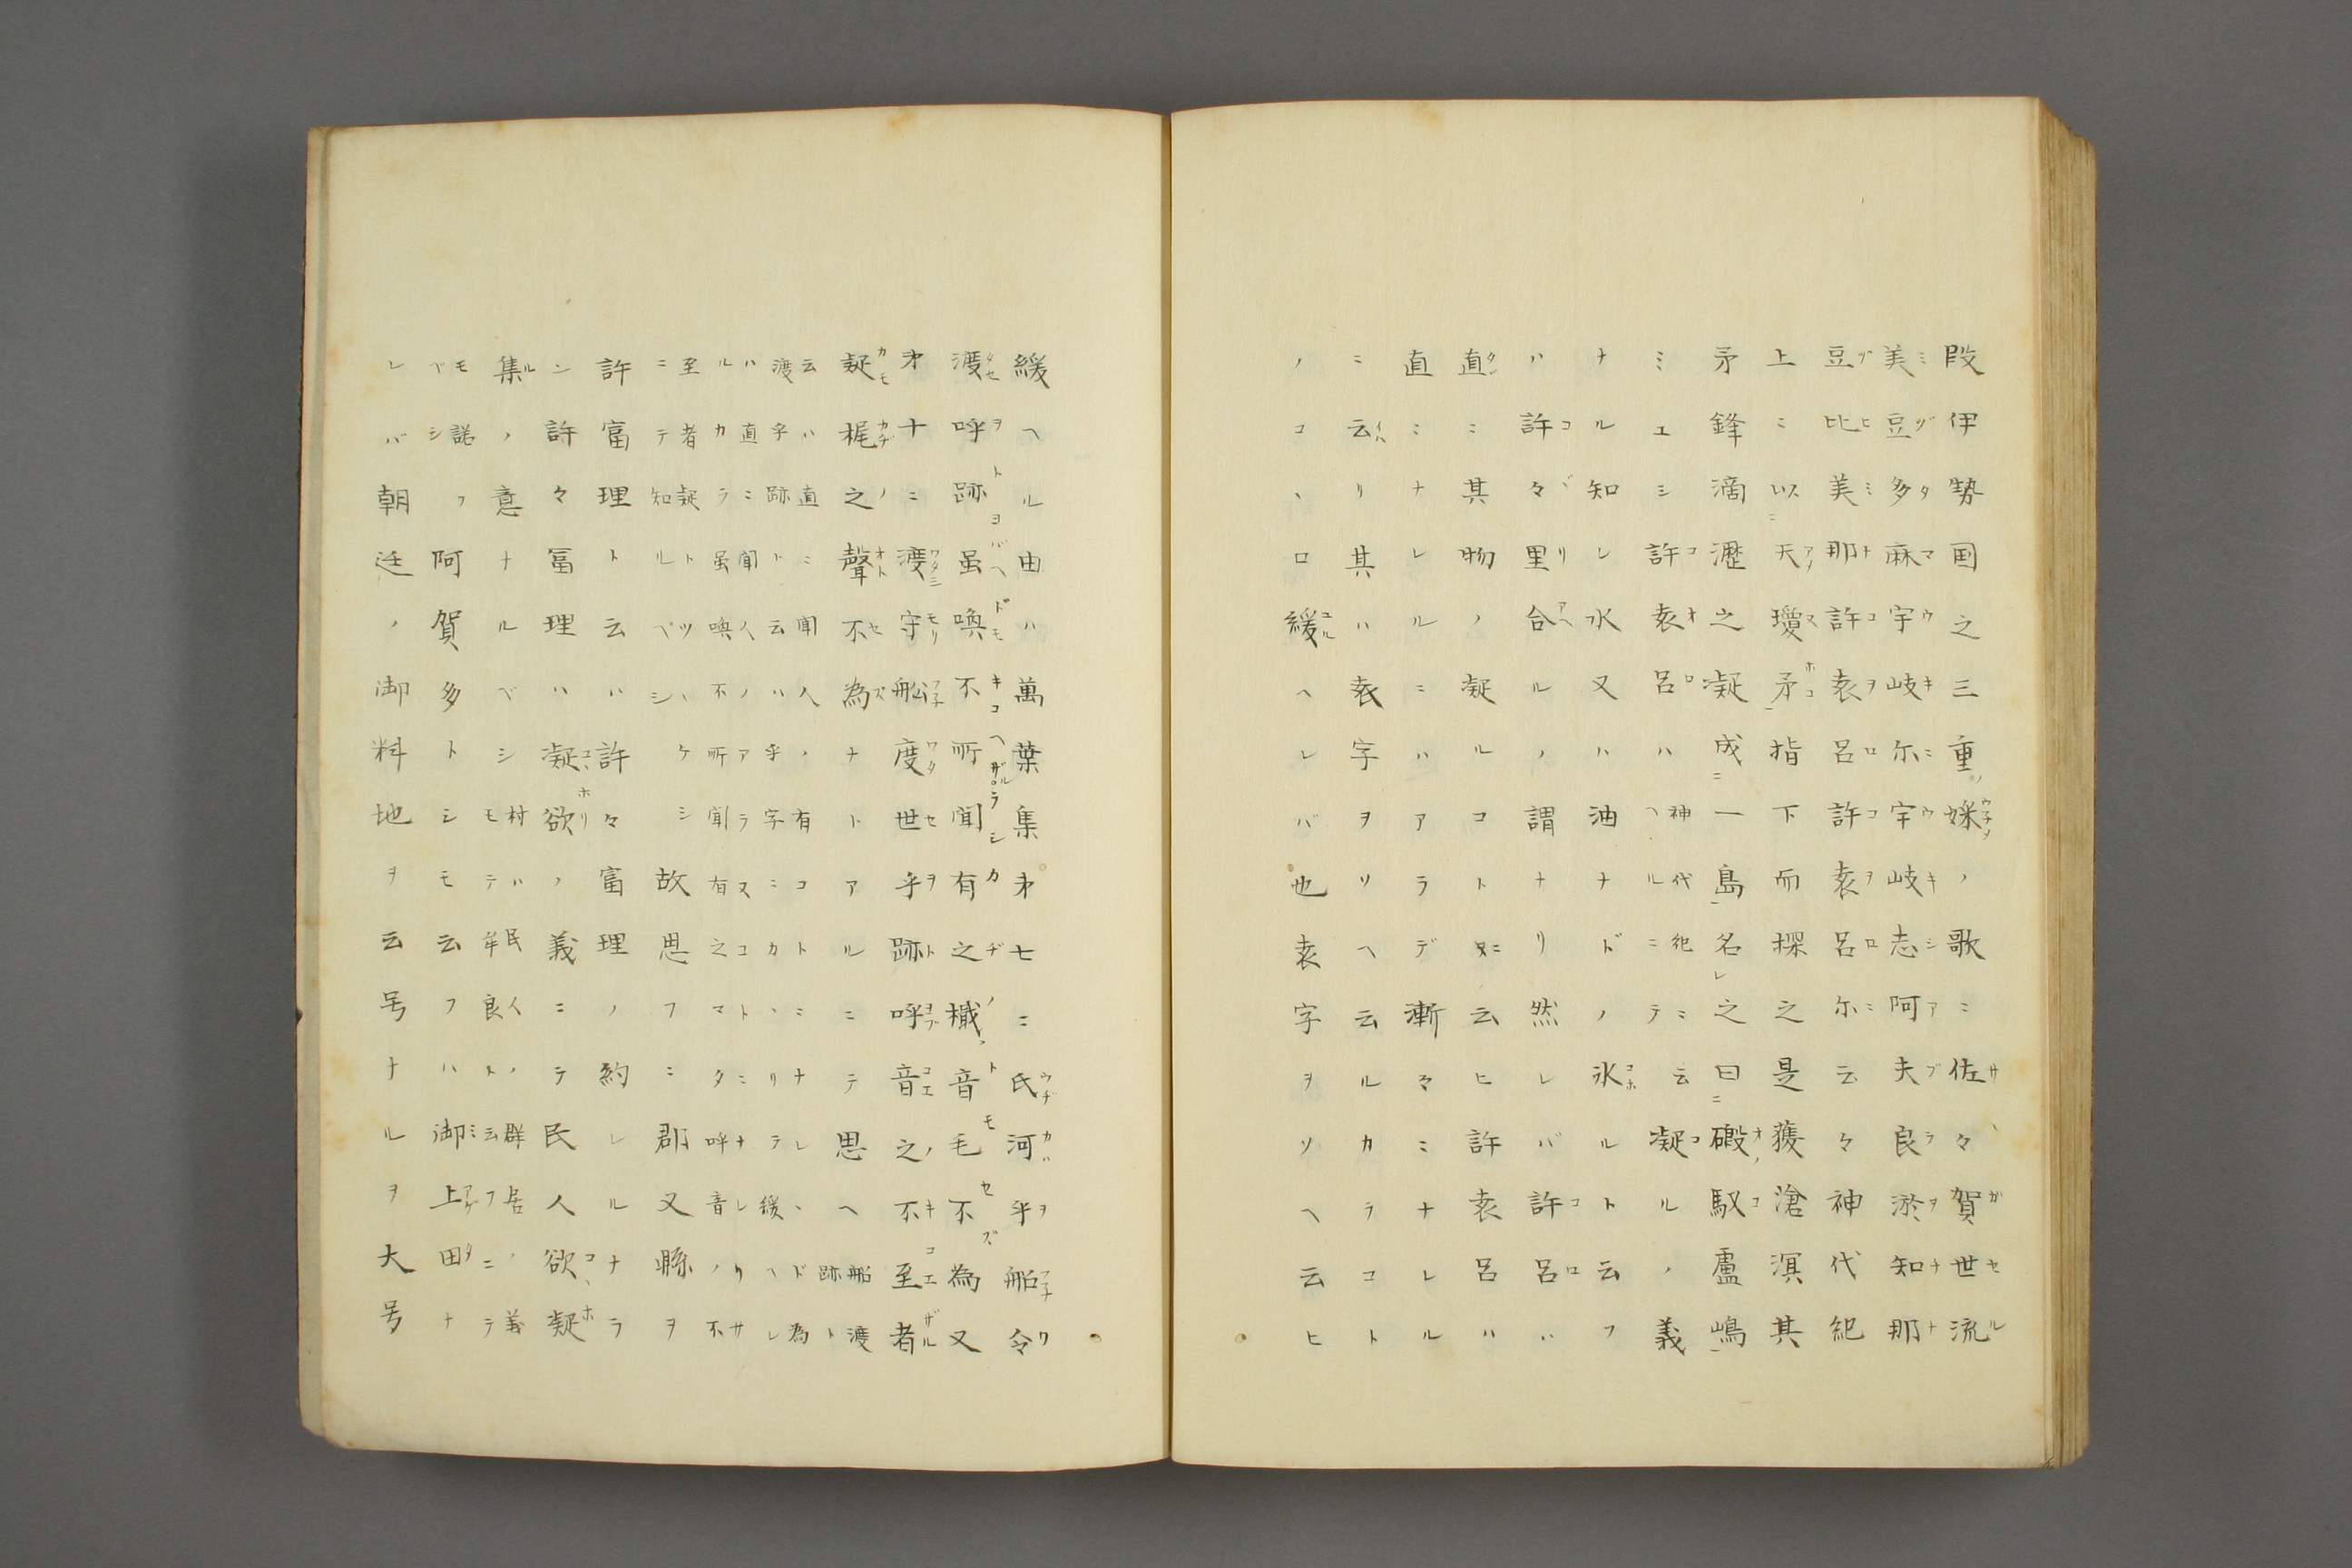 段伊勢国之三重ノ婇ノ歌ニ佐々賀世流
美豆多麻宇岐尓宇岐志阿夫良淤知那
豆比美那許袁呂許袁呂尓云々神代紀
上ニ以天瓊矛指下而探之是獲滄溟其
矛鋒滴瀝之凝成一島名之曰磤馭盧嶋
ミユシ許袁呂ハ神代紀ニ云凝ルノ義
ナル知レ水又ハ油ナドノ氷ルト云フ
ハ許々里合ルノ謂ナリ然レバ許呂ハ
直ニ其物ノ凝ルコトニ云ヒ許袁呂ハ
直ニナレルニハアラデ漸々ミナレル
ニ云リ其ハ袁字ヲソヘ云ルカラコト
ノコヽロ緩ヘレバ也袁字ヲソヘ云ヒ
緩ヘル由ハ萬葉集才七ニ氏河乎船令
渡呼跡虽喚不所聞有之檝音毛不為又
才十ニ渡守船度世乎跡呼音之不至者
疑梶之聲不為ナトアルニテ思ヘ船渡
跡ト云ハ直ニ聞人ノ有コト
渡乎跡ト云ハ乎字ニカヽリテ緩ヘレ
ハ直ニ聞人ノアラ
ルカラ虽喚不所聞有之マタ呼音ノ不
至者疑トツヽケシ
ニテ知ルベシ故思フニ郡又縣ヲ
許富理ト云ハ許々富理ノ約レルナラ
ン許々冨理ハ凝欲ノ義ニテ民人欲凝
集ルノ意ナルベシ村ハ民人ノ群居ノ義
モテ牟良ト云フニテ
モ諾フベシ阿賀多トシモ云フハ御上田ナ
レバ朝廷ノ御料地ヲ云号ナルヲ大号